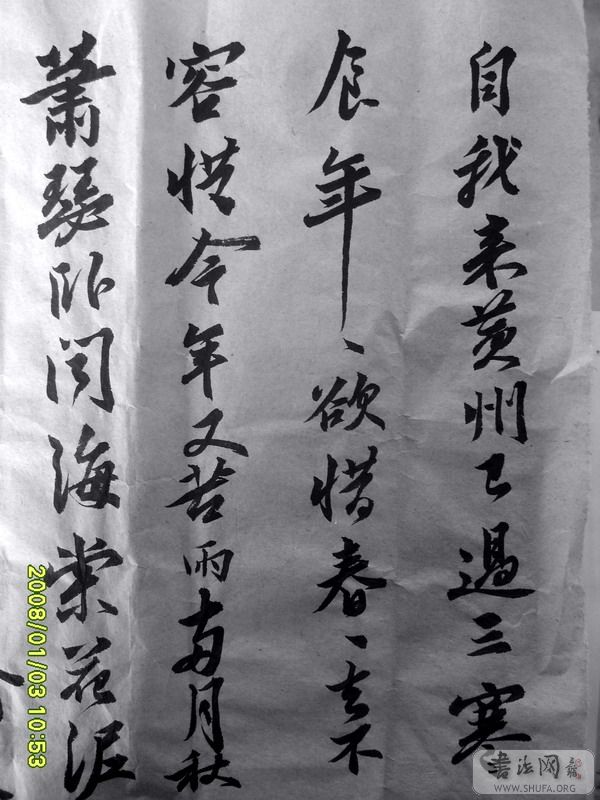 自我来黄州已過三寒
食年、欲惜春、去不
容惜今年又苦雨兩月秋
蕭瑟卧闻海棠花泥
2008/01/03 10:53
書法网
WWW.SHUFA.ORG